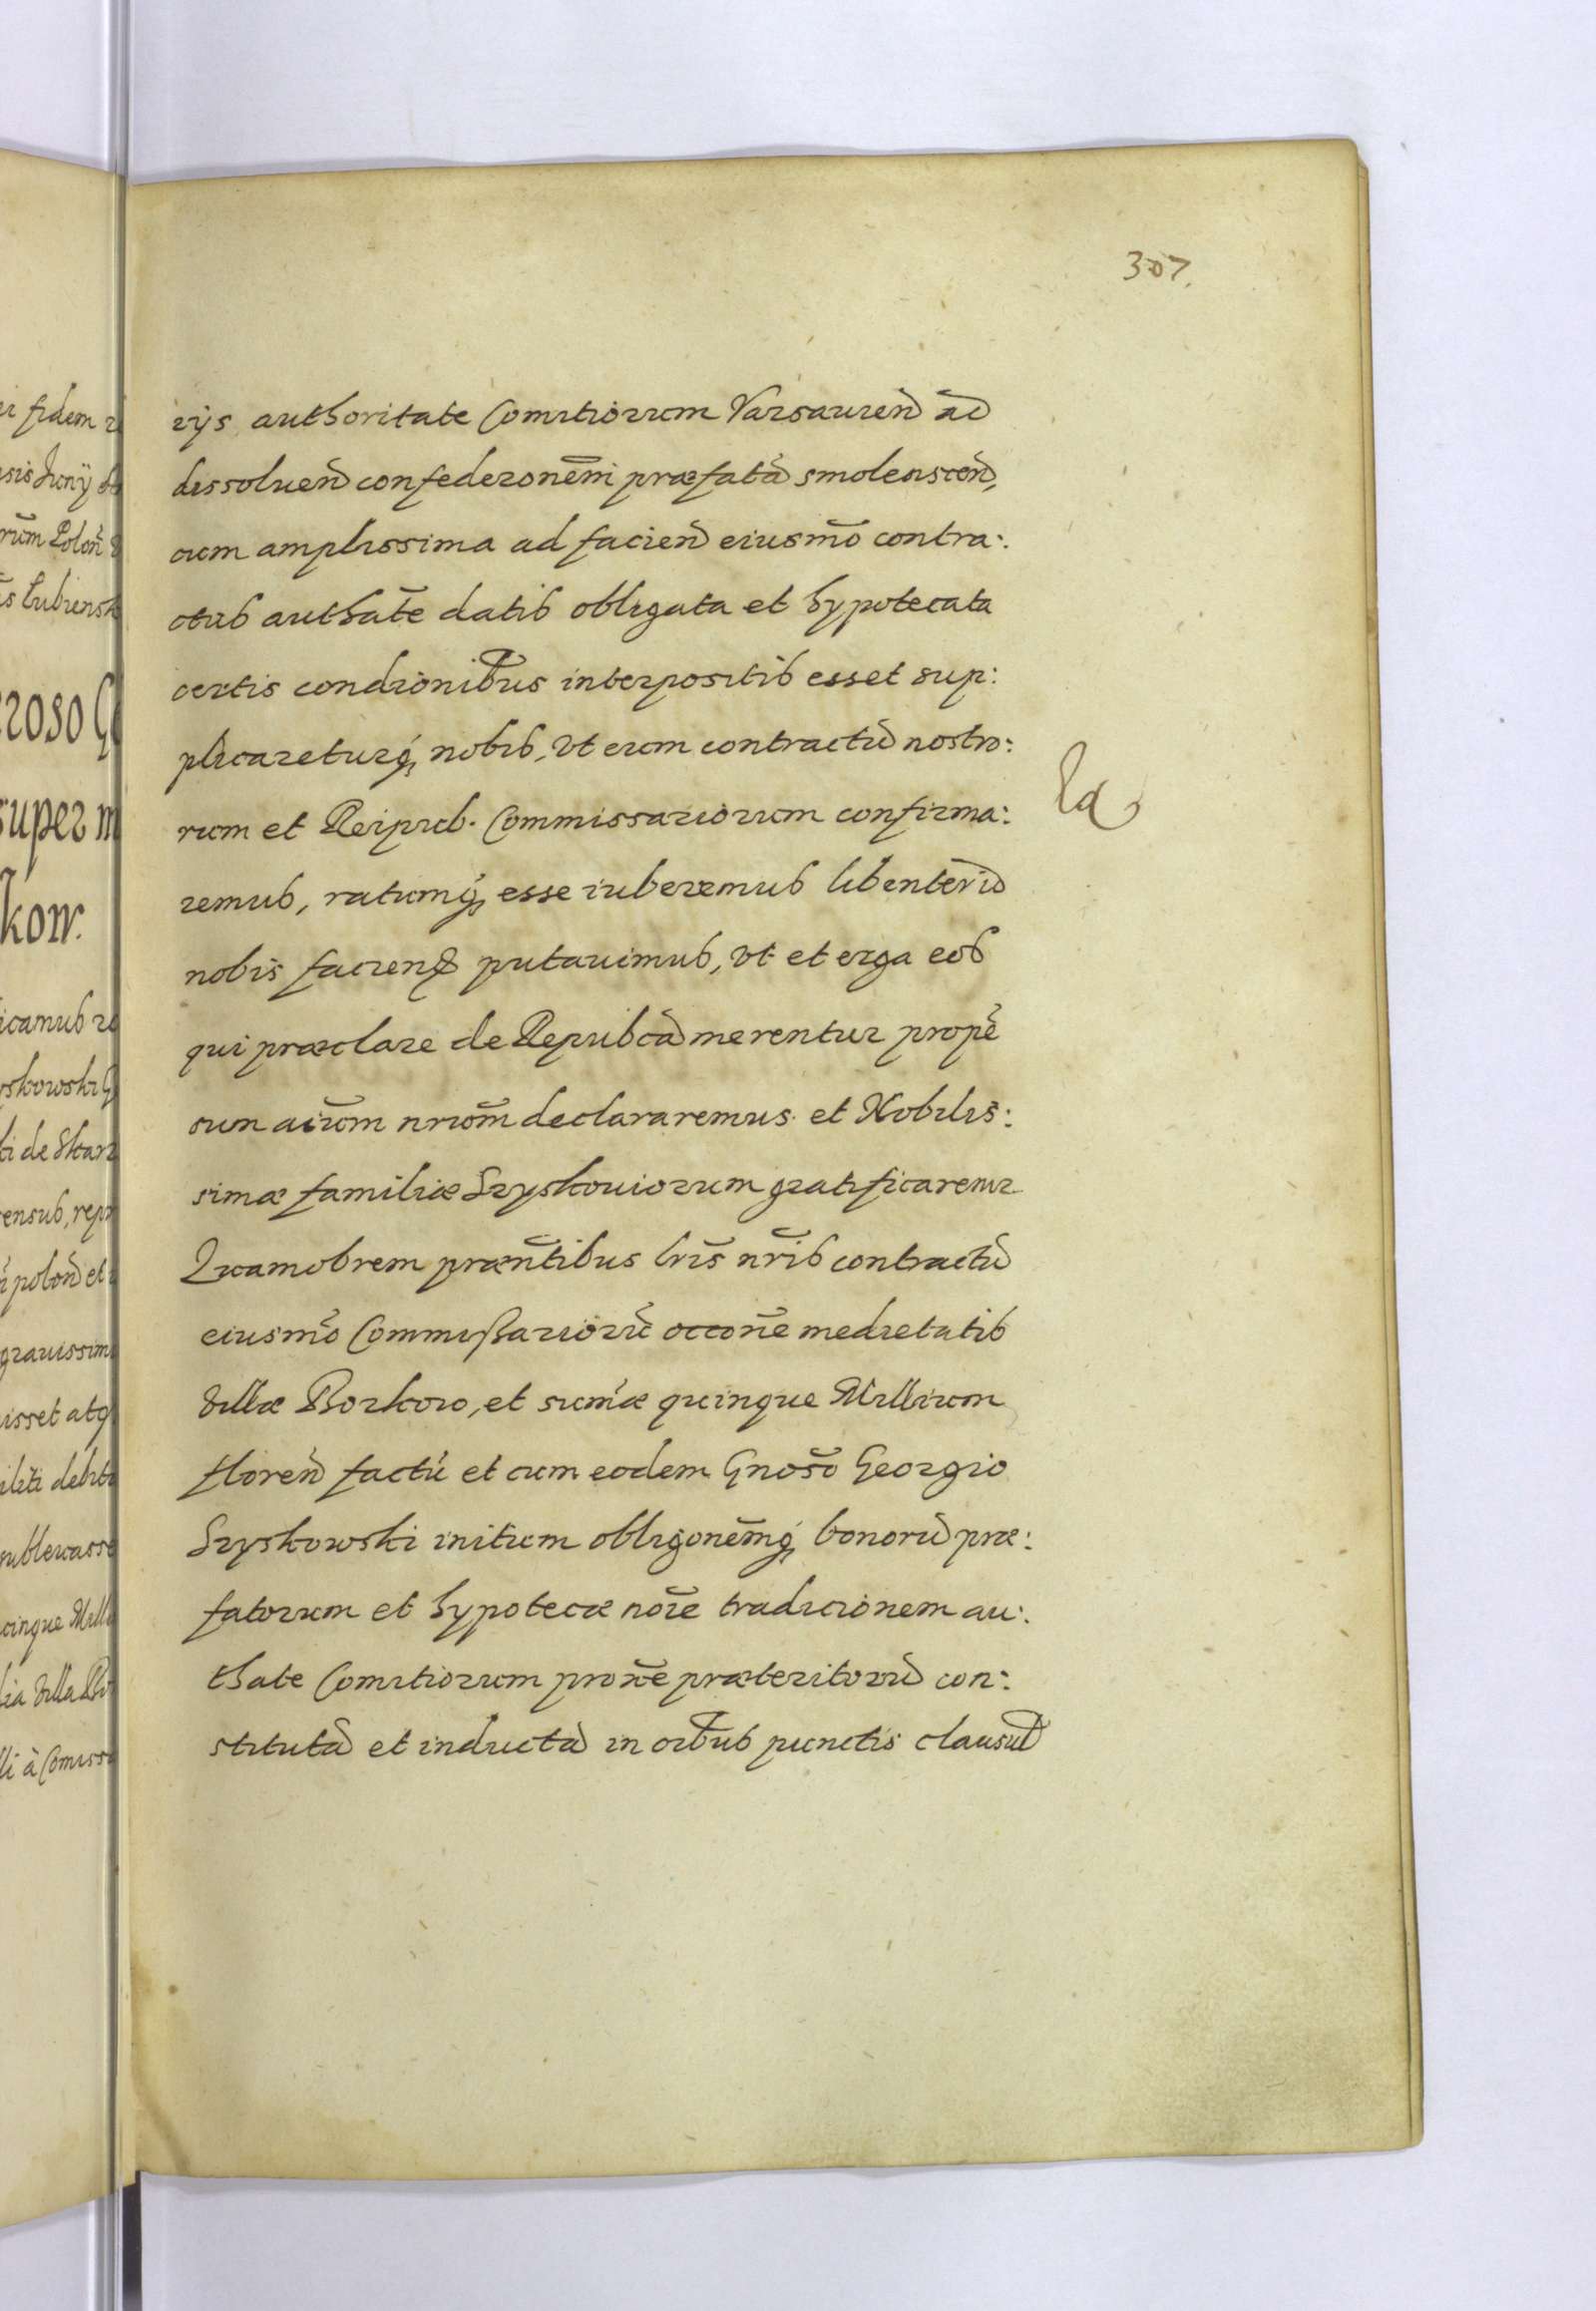 307.
rijs authoritate Comitiorum Varsauien ad
dissoluen confederonem præfata smolenscen,
cum amplissima ad facien eiusmo contra:
ctus authate datis obligata et hypotecata
certis condicionibus interpositis esset sup:
plicareturq nobis, Vt eum contractu nostro:
rum et Reipub. Commissariorum confirma:
remus, ratumq esse iuberemus libenter id
nobis faciend putauimus, Vt et erga eos
qui præclare de Repubca merentur prope
sum aium nrum declararemus et Nobilis:
simæ familiæ Szyskouiorum gratificaremr
Quamobrem præntibus lris nris contractu
eiusmo Commissarioru occone medietatis
Villæ Borkow, et sumæ quinque Millium
floren factu et cum eodem Gnoso Georgio
Szyskowski initum obligonemq bonoru præ:
fatorum et hypotecæ noie tradicionem au:
thate Comitiorum proxe præteritoru con:
stituta et inducta in oibus punctis clausul
ei fidem
sis Junij
rum Polon
s Lubiensk
roso G
super m
kow.
icamus
yskowski G
ti de Skar
ensus, rep
polon et
grauissim
isset atq
iliti debit
subleuass
cinque Mill
ia Villa Bo
li à Comiss